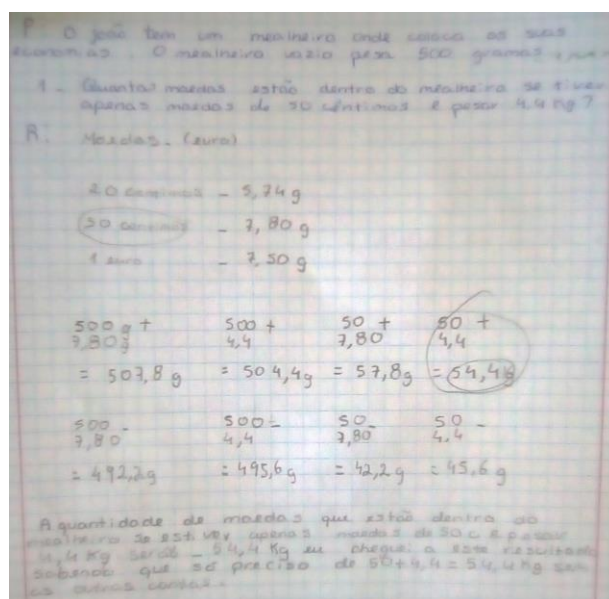 P O joão tem um mealheiro onde coloca as suas
economias. O mealheiro vazio pesa 500 gramas
1 - Quantas moedas estão dentro do mealheiro se tiver
apenas moedas de 50 cêntimos e pesar 4,4 Kg?
R: Moedas - (euro)
20 centimos - 5,74 g
50 centimos - 7,80 g
1 euro - 7,50 g
500 g + 500 + 50 + 50 +
7,80 g 4,4 7,80 4,4
= 507,8 g = 504,4 g = 57,8 g = 54,4 g
500 - 500 - 50 - 50 -
7,80 4,4 7,80 4,4
= 492,2 g = 495,6 g = 42,2 g = 45,6 g
A quantidade de moedas que estão dentro do
mealheiro se estiver apenas moedas de 50 c e pesar
4,4 Kg será - 54,4 Kg eu cheguei a este resultado
sabendo que só preciso de 50 + 4,4 = 54,4 Kg sem
as outras contas.